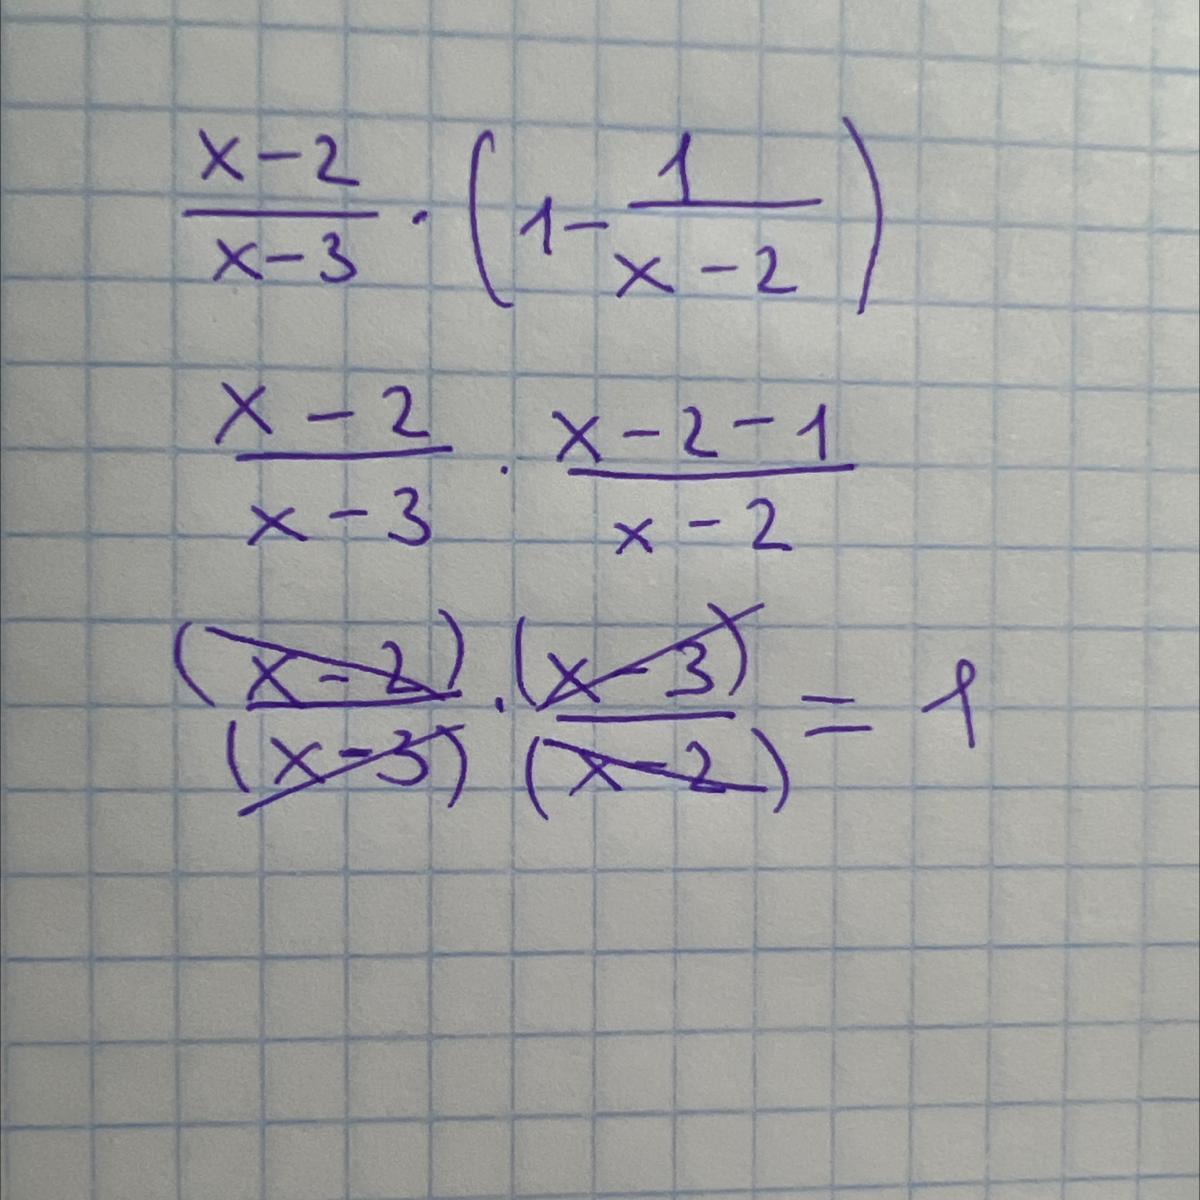 \frac{x-2}{x-3} \cdot \left(1-\frac{1}{x-2}\right)
\frac{x-2}{x-3} \cdot \frac{x-2-1}{x-2}
\frac{(x-2)}{(x-3)} \cdot \frac{(x-3)}{(x-2)} = 1